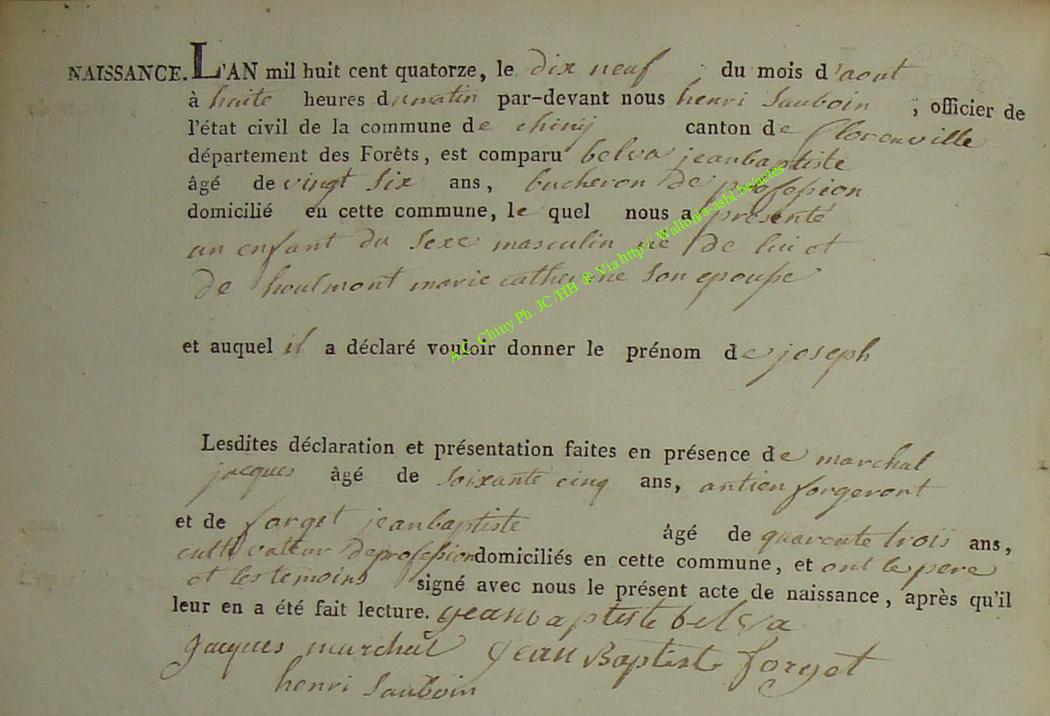 NAISSANCE. L'AN mil huit cent quatorze, le dix neuf du mois d'aout
à huite heures du matin par-devant nous henri Sauboin ; officier de
l'état civil de la commune de chinij canton de florenville
département des Forêts, est comparu belva jeanbaptiste
âgé de vingt Six ans, bucheron de profession
domicilié en cette commune, le quel nous a présenté
un enfant du Sexe masculin né de lui et
de houlmont marie catherine Son epouse
A.C. Chiny Ph. JC/HB © Via http://Wallonia-asbl.be/actes
et auquel il a déclaré vouloir donner le prénom de joseph
Lesdites déclaration et présentation faites en présence de marchal
jacques âgé de Soixante cinq ans, antien forgeront
et de forget jeanbaptiste âgé de quarente trois ans,
cultivateur de profession domiciliés en cette commune, et ont le pere
et les temoins signé avec nous le présent acte de naissance, après qu'il
leur en a été fait lecture. jeanbaptiste belva
jacques marchal jean Baptiste forget
henri Sauboin